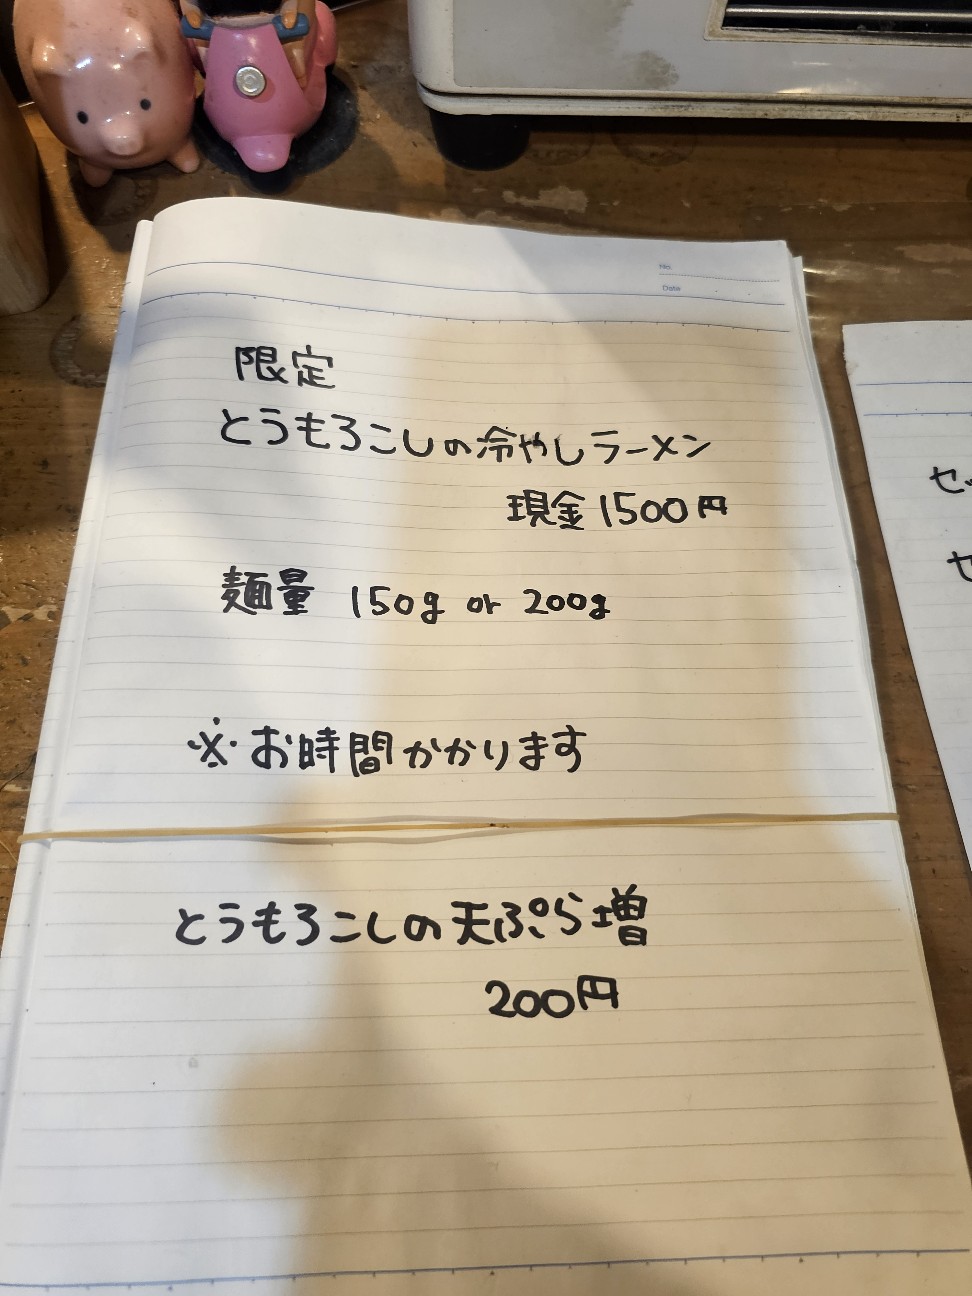 No.
Date
限定
とうもろこしの冷やしラーメン
現金1500円
麺量 150g or 200g
※お時間かかります
とうもろこしの天ぷら増
200円
セッ
セ